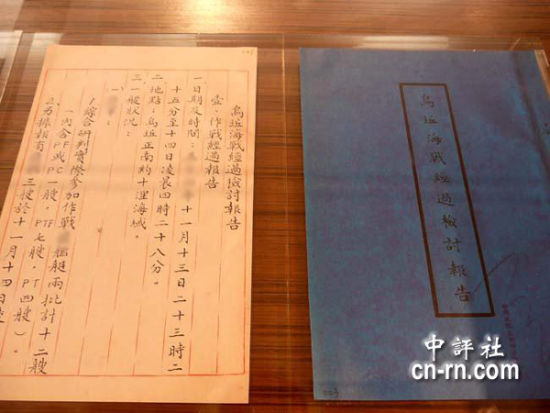 烏坵海戰經過檢討報告
壹、作戰經過報告
一、日期及時間：十一月十三日二十三時二
十五分至十四日凌晨四時二十八分。
二、地點：烏坵正南約十浬海域。
三、一般狀況：
1.綜合研判實際參加作戰艦艇兩批計十二艘
(內含PF或PC一艘，PTF七艘，PT四艘)。
2.另據報有三艘於十一月十四日
烏坵海戰經過檢討報告
中評社
cn-rn.com